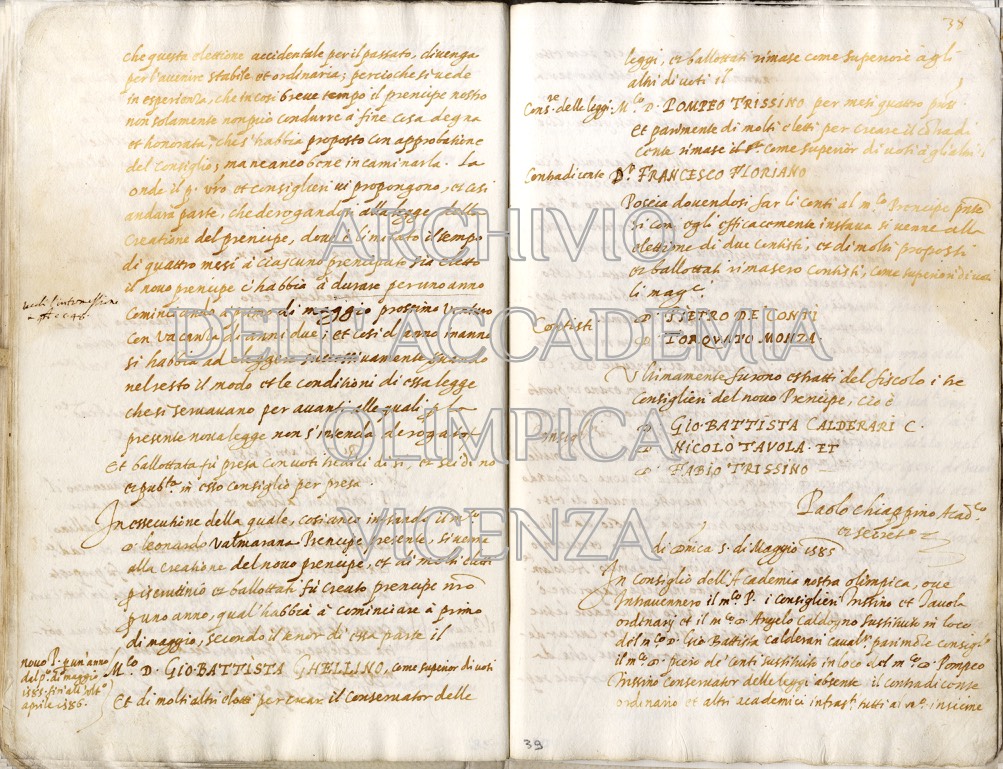 che questa elettione accidentale per il passato, divenga
per l'avvenire stabile et ordinaria; percioche si vede
in esperienza, che in cosi breve tempo il prencipe nostro
non solamente non può condurre à fine cosa degna
et honorata, ch's'habbia proposto con approbatione
del Consiglio, ma neanco bene incaminarla. La
onde il p. vro et consiglieri vi propongono, et cosi
anderà parte, che derogandosi alla legge della
creatione del prencipe, dov'è limitato il tempo
di quattro mesi à ciascuno prencipato sia eletto
il novo prencipe c'habbia à durare per uno anno
cominciando à primo di maggio prossimo venturo
con vacanza di anni due; et cosi d'anno in anno
si habbia ad eleggere successivamente servando
nel resto il modo et le conditioni di essa legge
che si servavano per avanti alle quali p la
presente nova legge non s'intenda derogato
Et ballottata fù presa con voti tredici di si, et sei di no
et pub.ta in esso consiglio per presa
In essecutione della quale, cosi anco instando il m.co
D. Leonardo Valmarana Prencipe presente, si venne
alla creatione del novo prencipe, et di molti eletti
p scrutinio et ballottati fù creato prencipe nro
p uno anno, qual'habbia à cominciare à primo
di maggio, secondo il tenor di essa parte il
novo P. p un'anno
dal p.o di maggio
1585. fin all'ult.o
aprile 1586.
M.co D. GIO BATTISTA GHELLINO, come superior di voti
Et di molti altri eletti per crear il conservator delle
38
leggi, et ballottati rimase come superiore à gli
altri di voti il
Cons.re delle leggi. M.co D. POMPEO TRISSINO per mesi quattro pross.
Et parimente di molti eletti per creare il contradi
cente rimase il s.r come superior di voti à gli altri,
Contradicente D. FRANCESCO FLORIANO
Poscia dovendosi far li conti al m.co Prencipe pnte
si con egli efficacemente instava si venne alla
elettione di due contisti, et di molti proposti
et ballottati rimasero contisti, come superiori di voti
li mag.ci
D. PIETRO DE CONTI
Contisti
D. TORQUATO MONZA
Ultimamente furono estratti del fiscolo i tre
Consiglieri del novo Prencipe, cio è
D. GIO. BATTISTA CALDERARI C.
Consigl.
D. NICOLÒ TAVOLA. ET
D. FABIO TRISSINO
Paolo Chiappino Acad.co
et secret.o
di Dñica 5. di Maggio 1585
In Consiglio dell'Academia nostra olimpica, ove
Intravennero il m.co P. i Consiglieri Trissino et Tavola
ordinarij et il m.co D. Angelo Caldogno sustituto in loco
del m.co D. Gio Battista calderari caval.r parimente consigl.r
il m.co D. piero de' conti sustituto in loco del m.co D. Pompeo
Trissino conservator delle leggi absente il contradicente
ordinario et altri academici infras.ti tutti al n.o insieme
39
ARCHIVIO
DELL'ACCADEMIA
OLIMPICA
VICENZA